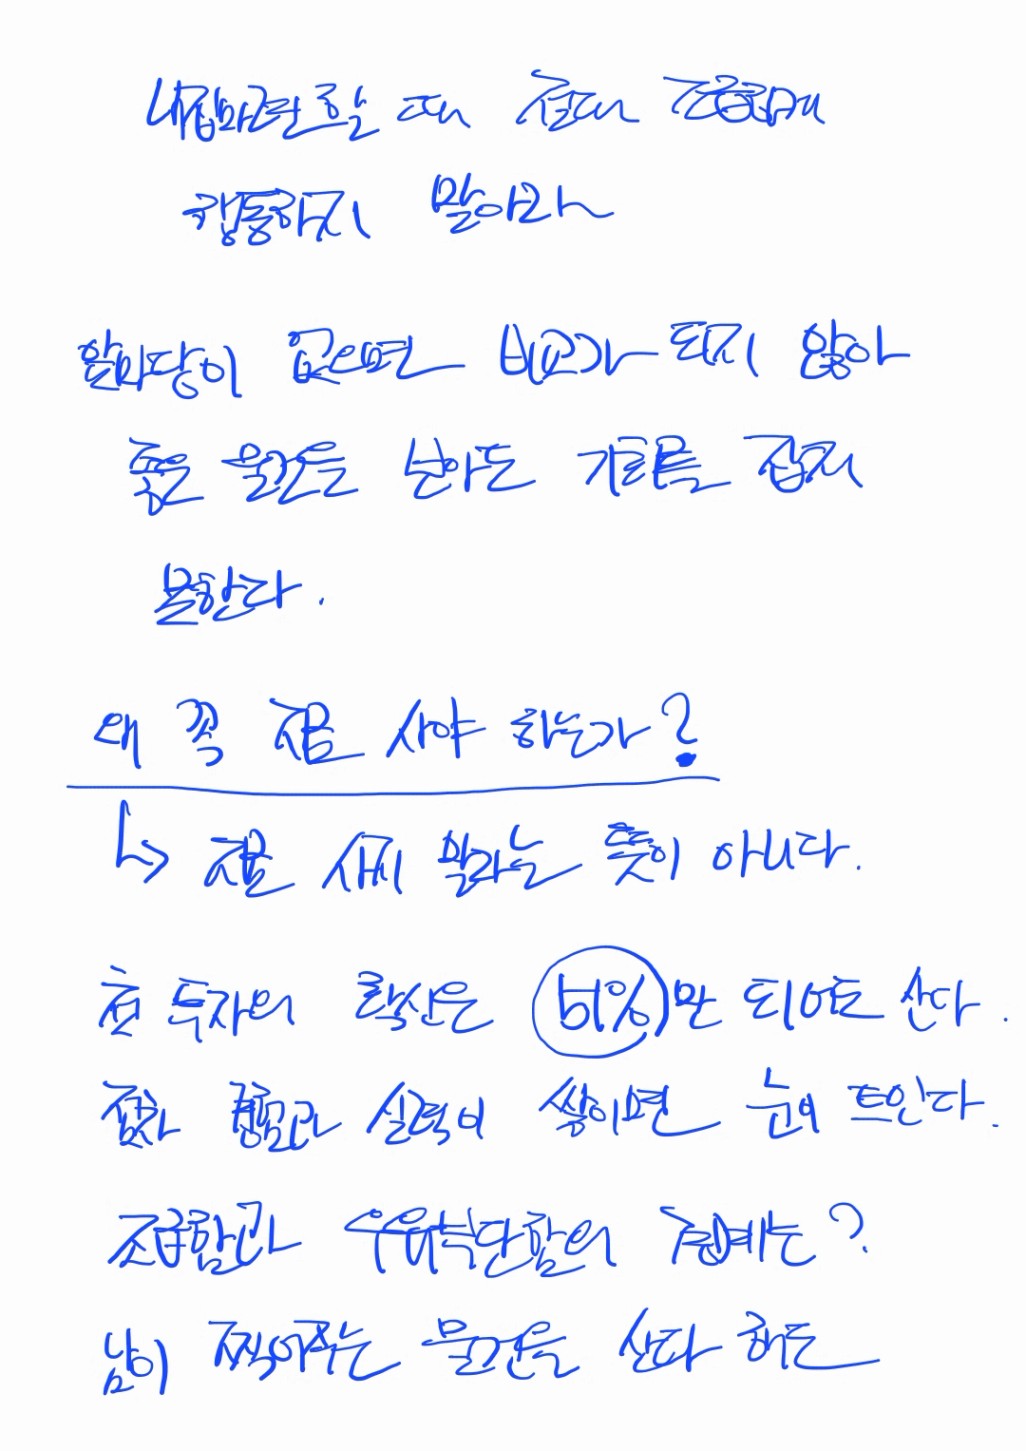 내집마련 할 때 절대 조급하게
행동하지 말아라
앞마당이 없으면 비교가 되지 않아
좋은 물건을 놔도 기회를 잡지
못한다.
왜 꼭 지금 사야 하는가?
↳ 지금 사지 말라는 뜻이 아니다.
첫 투자의 확신은 51%만 되어도 산다.
점차 경험과 실력이 쌓이면 눈이 트인다.
조급함과 우유부단함의 경계는?
남이 찍어주는 물건을 산다 해도